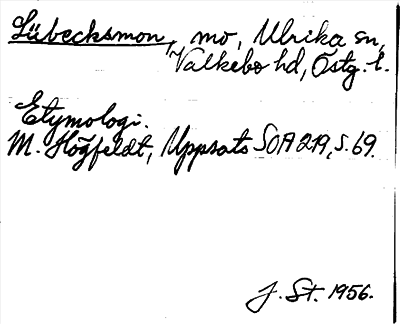 Lübecksmon, mo, Ulrika sn,
Valkebo hd, Östg. l.
Etymologi.
M. Högfeldt, Uppsats SOA 219, s. 69.
J. St. 1956.